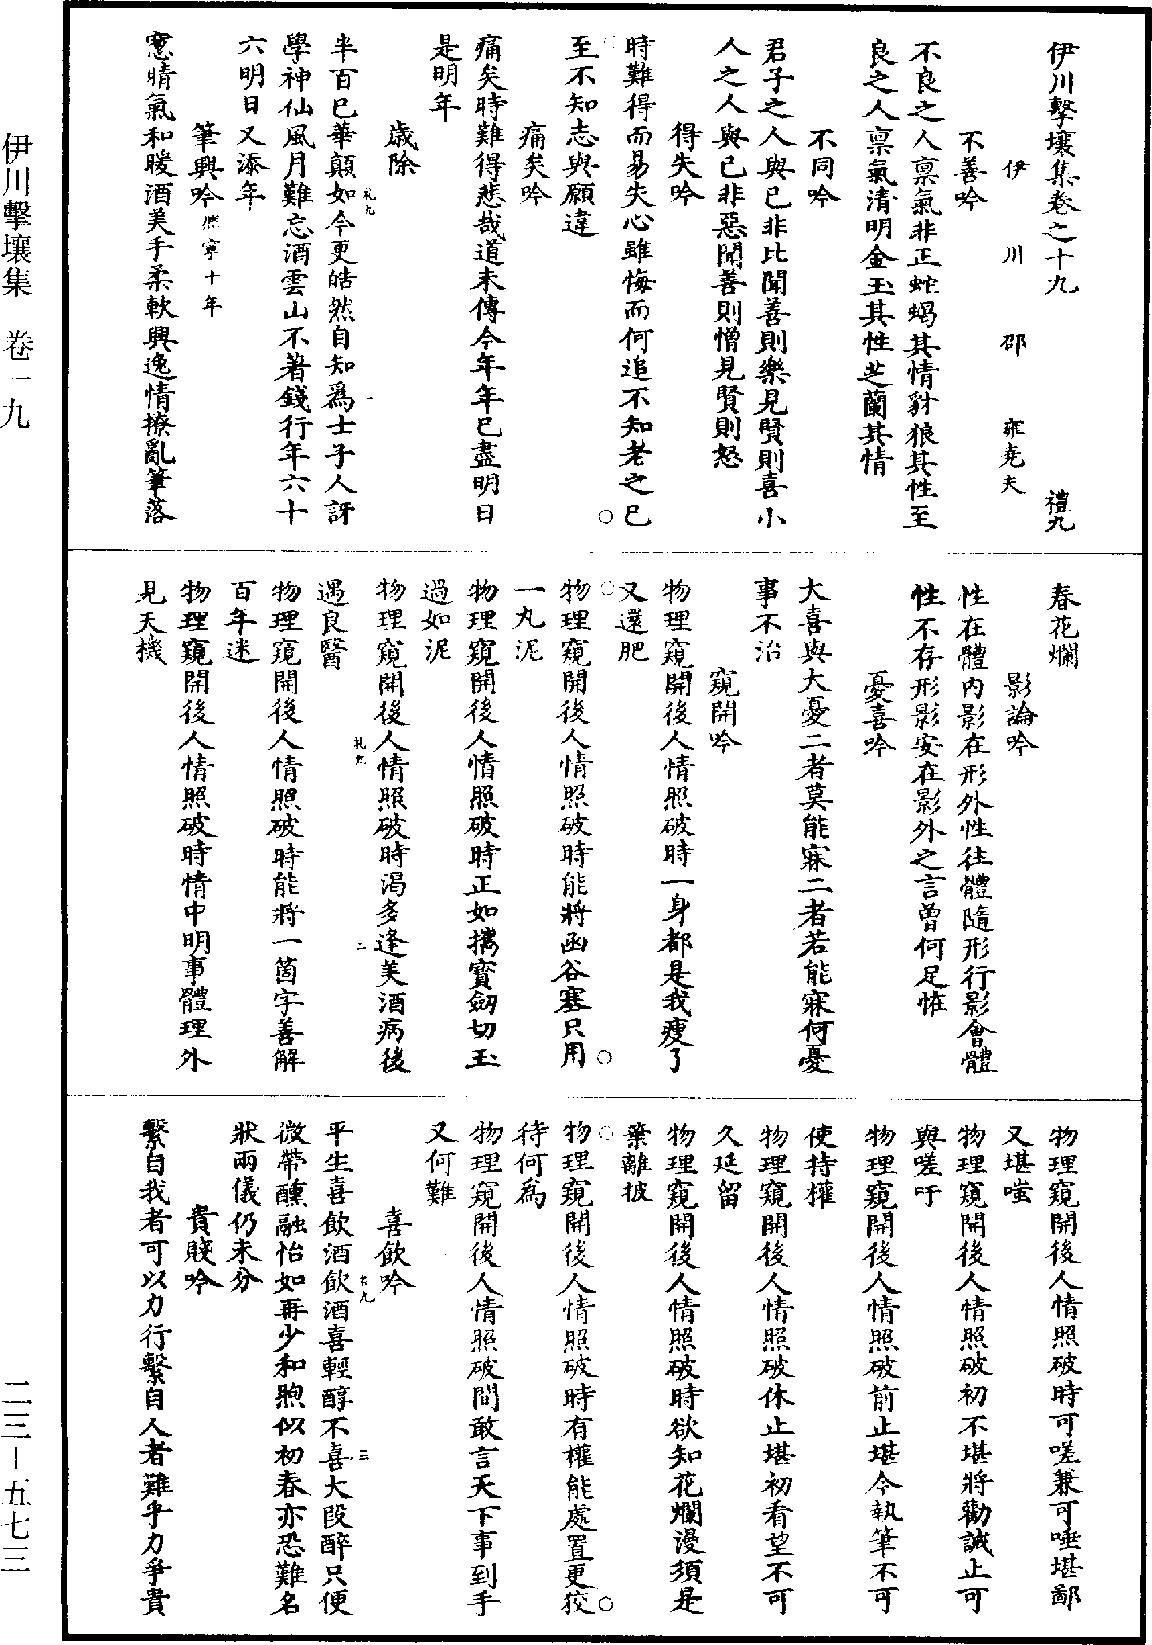 伊川擊壤集卷之十九　禮九
伊川邵雍堯夫
不善吟
不良之人禀氣非正蛇蝎其情豺狼其性至
良之人禀氣清明金玉其性芝蘭其情
不同吟
君子之人與已非比聞善則樂見賢則喜小
人之人與已非惡聞善則憎見賢則怒
得失吟
時難得而易失心雖悔而何追不知老之已
至不知志與願違
痛矣吟
痛矣時難得悲哉道未傳今年年已盡明日
是明年
歲除
半百已華顛如今更皓然自知爲士子人訝
學神仙風月難忘酒雲山不著錢行年六十
六明日又添年
筆興吟熈寧十年
窻晴氣和暖酒美手柔軟興逸情撩亂筆落
春花爛
影論吟
性在體内影在形外性往體隨形行影會體
性不存形影安在影外之言曾何足恠
憂喜吟
大喜與大憂二者莫能寐二者若能寐何憂
事不治
窺開吟
物理窺開後人情照破時一身都是我瘦了
又還肥
物理窺開後人情照破時能將函谷塞只用
一丸泥
物理窺開後人情照破時正如攜寳劒切玉
過如泥
物理窺開後人情照破時渴多逢美酒病後
遇良醫
物理窺開後人情照破時能將一箇字善解
百年迷
物理窺開後人情照破時情中明事體理外
見天機
物理窺開後人情照破時可嗟兼可唾堪鄙
又堪嗤
物理窺開後人情照破初不堪將勸誡止可
與嗟吁
物理窺開後人情照破前止堪今執筆不可
使持權
物理窺開後人情照破休止堪初看望不可
久延留
物理窺開後人情照破時欲知花爛漫須是
葉離披
物理窺開後人情照破時有權能處置更狡
待何爲
物理窺開後人情照破間敢言天下事到手
又何難
喜飲吟
平生喜飲酒飲酒喜輕醇不喜大段醉只便
微帶醺融怡如再少和煦似初春亦恐難名
狀兩儀仍未分
貴賤吟
繫自我者可以力行繫自人者難乎力爭貴
伊川擊壤集　卷一九
二三－五七三